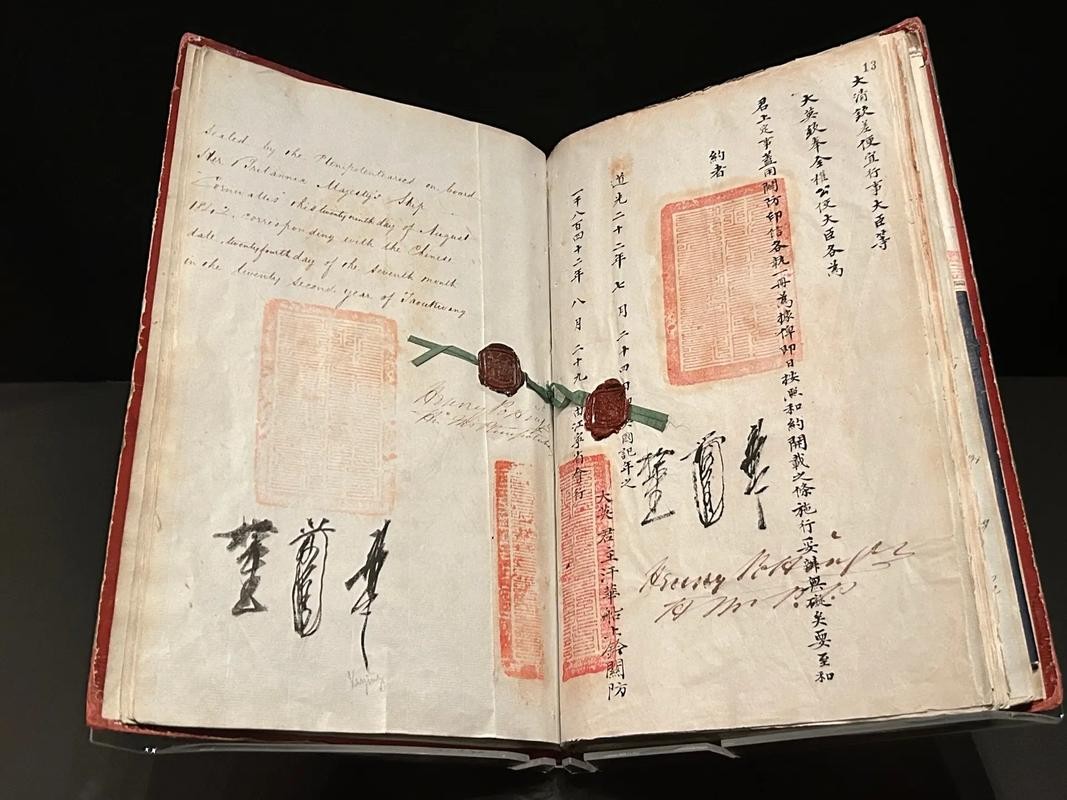 Sealed by the Plenipotentiaries on board
Her Britannic Majesty's Ship
Cornwallis this twenty ninth day of August
1842. corresponding with the Chinese
date, twenty fourth day of the seventh month
in the twenty second year of Taoukwang
Henry Pottinger
13
大清欽差便宜行事大臣等
大英欽奉全權公使大臣各為
君上定事蓋用關防印信各執一冊為據俾即日按照和約開載之條施行妥辦無礙矣要至和
約者
道光二十二年七月二十四日即英國記年之
一千八百四十二年八月二十九日由江寧省會行
大英君主汗華船上鈐關防
Henry Pottinger